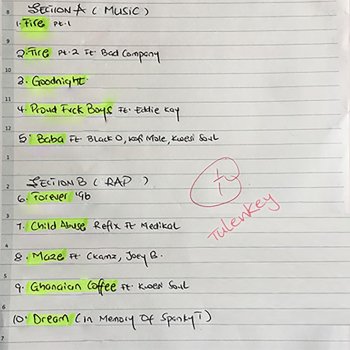 SECTION A (MUSIC)
1. Fire Pt. 1
2. Fire Pt. 2 Ft Bad Company
3. Goodnight
4. Proud Fvck Boys Ft. Eddie Kay
5. Baba Ft. Black O, Kofi Mole, Kwesi Soul
SECTION B (RAP)
6. Forever '96
7. Child Abuse Refix Ft Medikal
8. Maze Ft Ckamz, Joey B.
9. Ghanaian Coffee Ft. Kwesi Soul
10. Dream (In Memory Of Spanky T)
1/10
Tulenkey